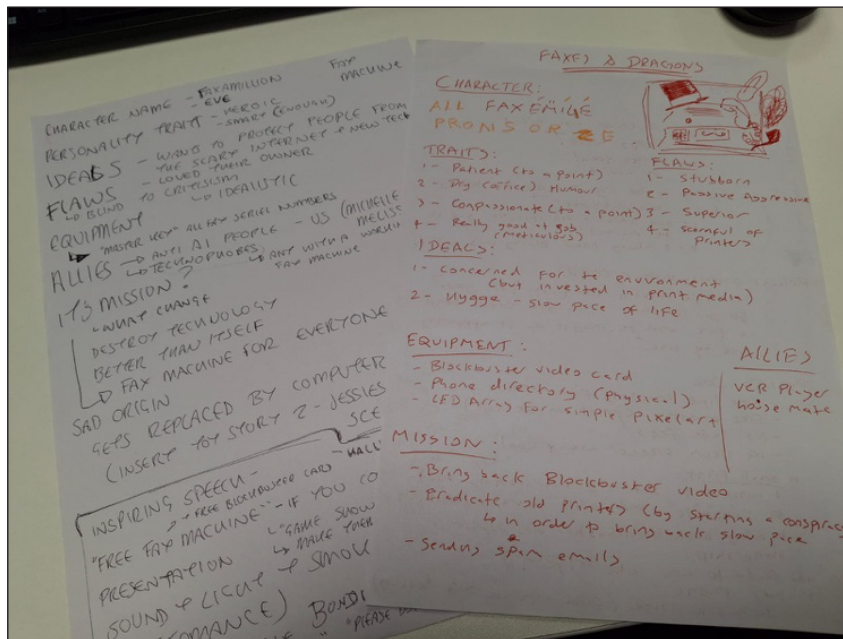 CHARACTER NAME - FAXAMILLION FAX MACHINE
- EVE
PERSONALITY TRAIT - HEROIC
- SMART (ENOUGH)
IDEALS - WANTS TO PROTECT PEOPLE FROM
THE SCARY INTERNET + NEW TECH
FLAWS - LOVED THEIR OWNER
↳ BLIND TO CRITISISM
↳ IDEALISTIC
EQUIPMENT
↳ "MASTER KEY" ALL FAX SERIAL NUMBERS
ALLIES → ANTI AI PEOPLE - US (MICHELLE
MELISS
↳ TECHNOPHOBES
↳ ANY WITH A WORKIN
FAX MACHINE
IT'S MISSION?
↳ WHAT CHANGE
DESTROY TECHNOLOGY
BETTER THAN ITSELF
↳ FAX MACHINE FOR EVERYONE
SAD ORIGIN
GETS REPLACED BY COMPUTER
(INSERT TOY STORY 2 - JESSIES
SCE
INSPIRING SPEECH - 
↗ FREE BLOCKBUSTER CARD
"FREE FAX MACHINE" - IF YOU CO
PRESENTATION ↳ "GAME SHOW
↳ MAKE THEM
SOUND + LIGHT + SMOK
BONDI
"PLEASE
FAXES & DRAGONS
CHARACTER:
ALL FAXÉMÍLÉ
TRAITS:
1 - Patient (to a point)
2 - Dry (office) Humour
3 - Compassionate (to a point)
4 - Really good at job
(meticulous)
FLAWS:
1 - Stubborn
2 - Passive Aggressive
3 - Superior
4 - Scornful of
Printers
IDEALS:
1 - Concerned for the environment
(but invested in print media)
2 - Hygge - slow pace of life
EQUIPMENT:
- Blockbuster video card
- Phone directory (physical)
- LED Array for simple pixelart
ALLIES
VCR Player
house mate
MISSION:
- Bring back Blockbuster video
- Eradicate old printers (by starting a conspiracy
↳ in order to bring back slow pace
- Sending spam emails